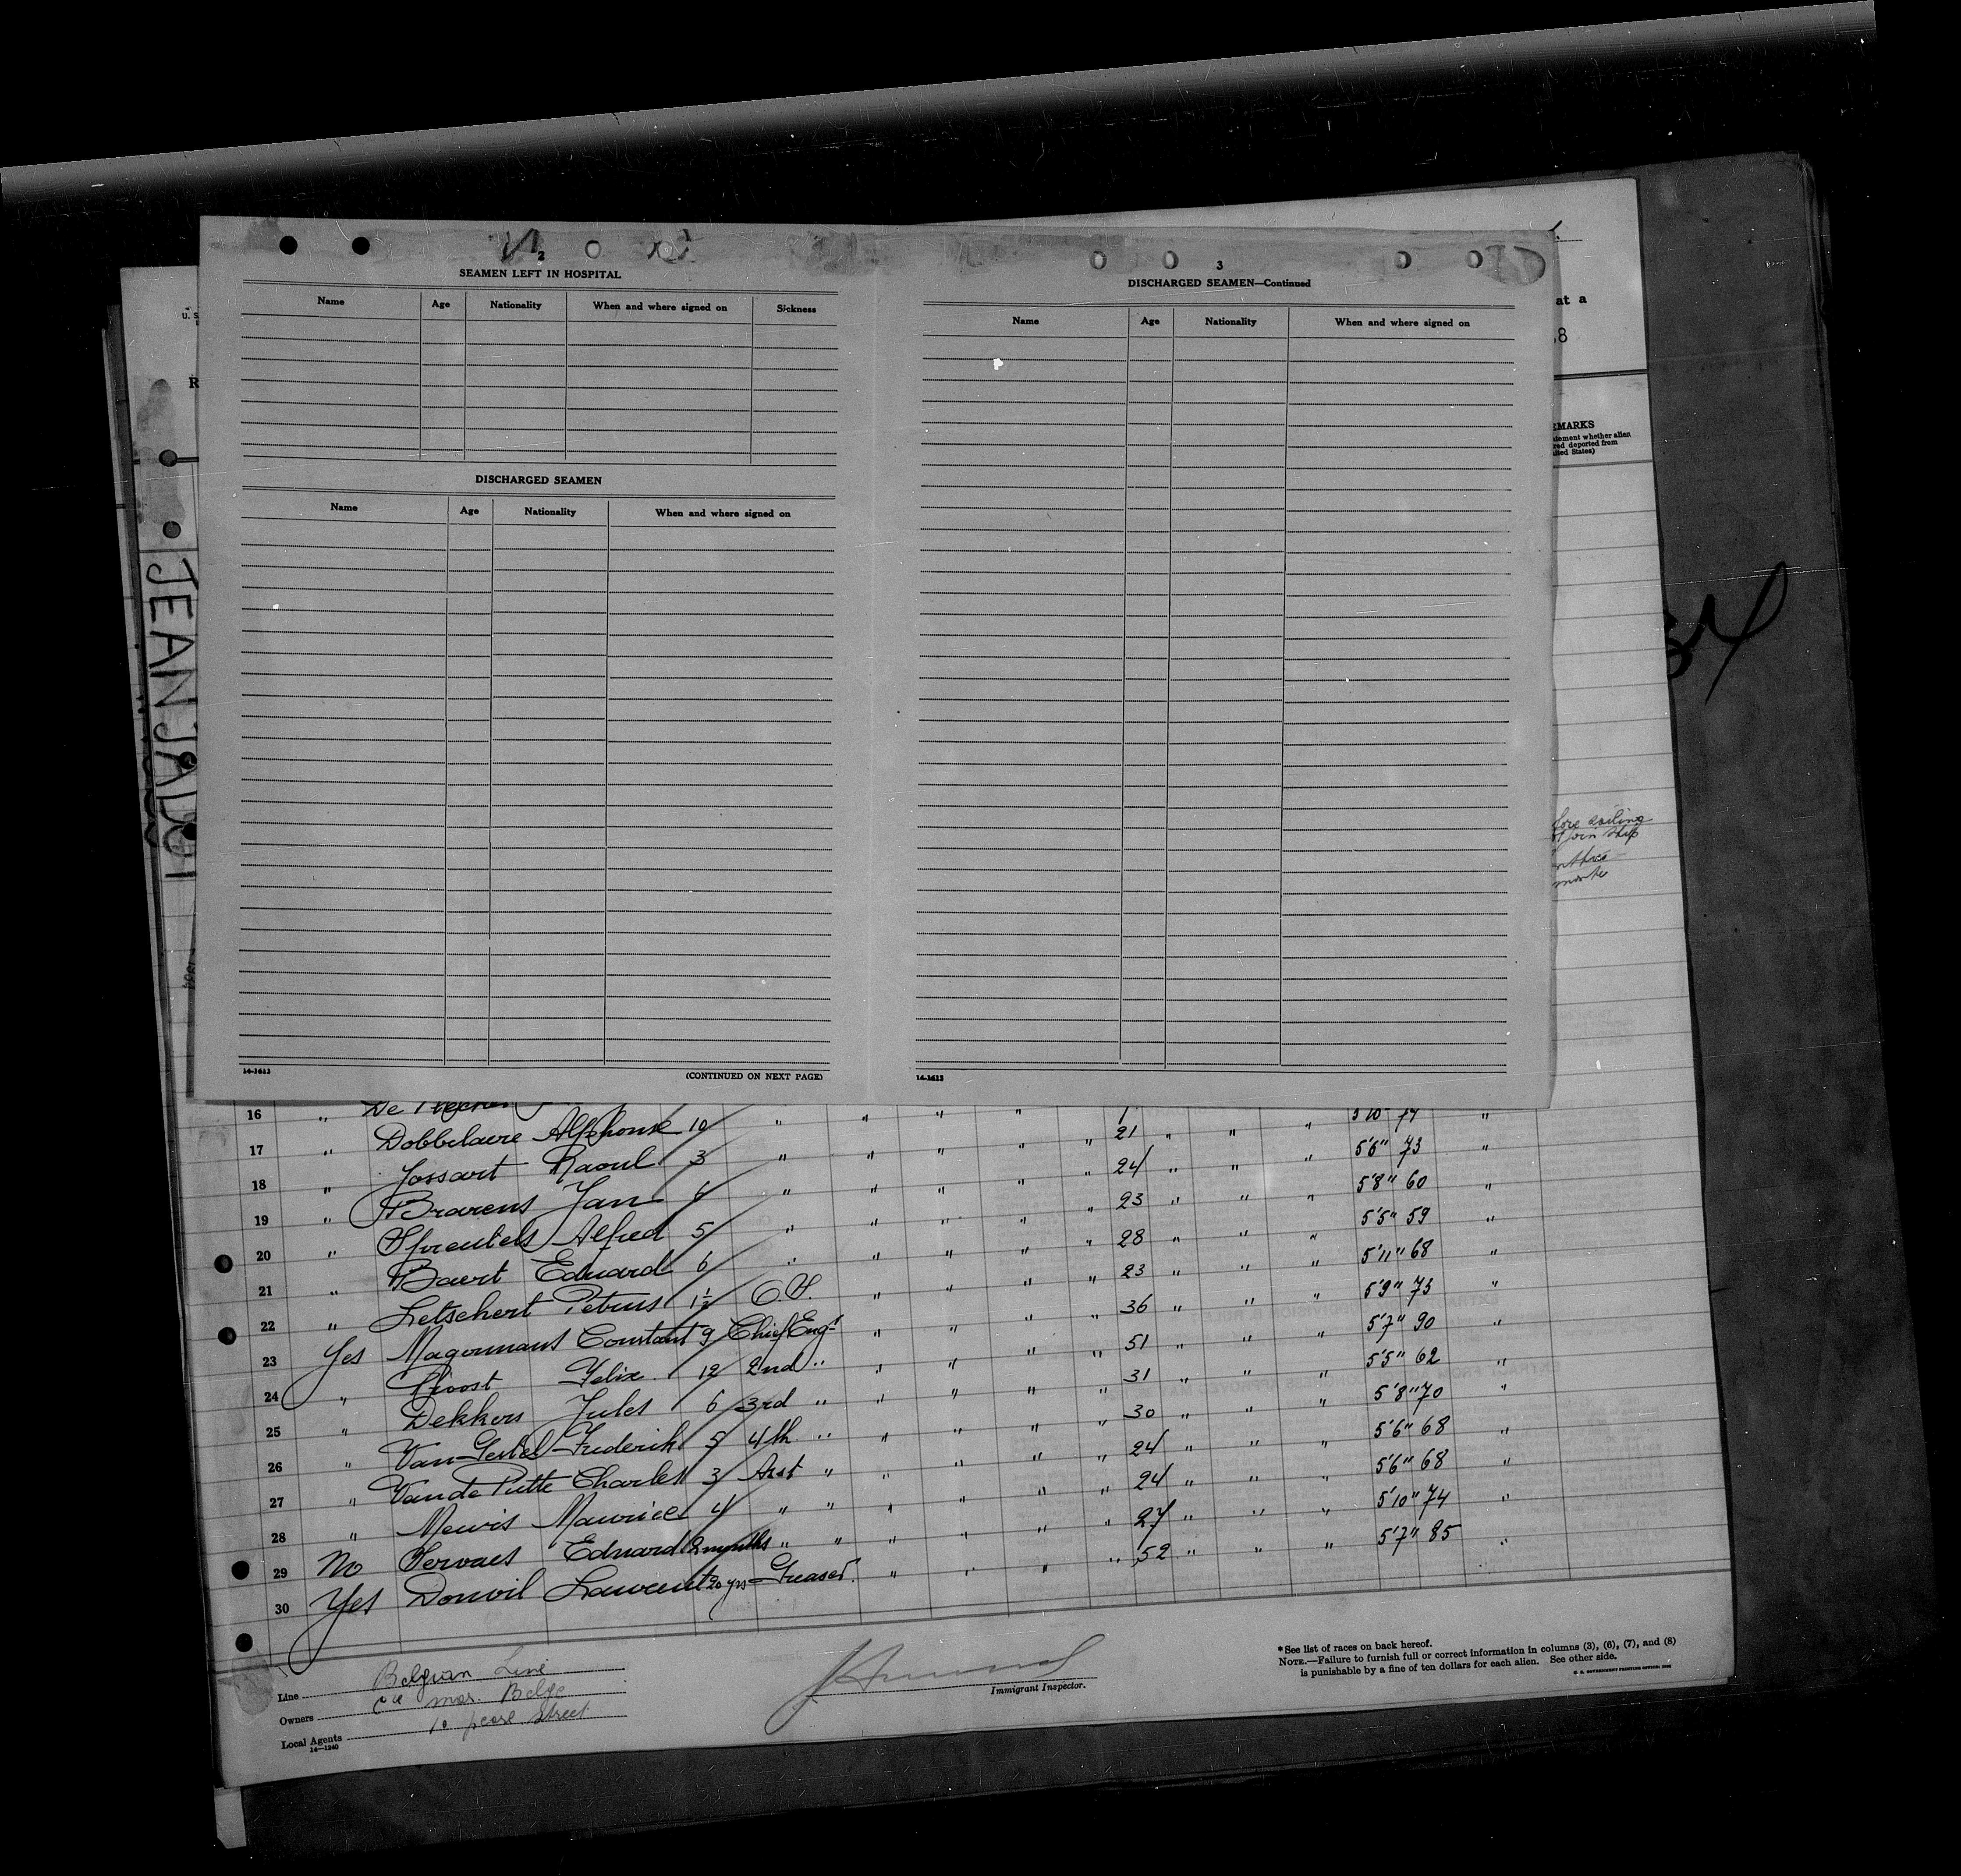 2
SEAMEN LEFT IN HOSPITAL
Name Age Nationality When and where signed on Sickness
DISCHARGED SEAMEN
Name Age Nationality When and where signed on
14-1613
(CONTINUED ON NEXT PAGE)
3
DISCHARGED SEAMEN—Continued
Name Age Nationality When and where signed on
14-1613
U. S
R
JEAN JADOT
at a
8
MARKS
tement whether alien
red deported from
ited States)
fore sailing
join ship
34
16 " De 5'10" 74 "
17 " Dobbelaere Alphonse 10 " " " " " 21 " " " 5'6" 73 "
18 " Jossart Raoul 3 " " " " " 24 " " " 5'8" 60 "
19 " Brarens Jan 4 " " " " " 23 " " " 5'5" 59 "
20 " Sprentels Alfred 5 " " " " " 28 " " " 5'11" 68 "
21 " Baert Eduard 6 " " " " " 23 " " " 5'9" 73 "
22 " Letschert Petrus 1½ O.S. " " " " 36 " " " 5'7" 90 "
23 Yes Magermans Constant 9 Chief Engr " " " " 51 " " " 5'5" 62 "
24 " Proost Felix 12 2nd " " " " " 31 " " " 5'8" 70 "
25 " Dekkers Jules 6 3rd " " " " " 30 " " " 5'6" 68 "
26 " Van Gestel Frederik 5 4th " " " " " 24 " " " 5'6" 68 "
27 " Van de Putte Charles 3 Asst " " " " " 24 " " " 5'10" 74 "
28 " Mewis Maurice 4 " " " " " " 27 " " " 5'7" 85 "
29 No Servaes Eduard 2 months " " " " " " 52 " " "
30 Yes Donvil Laurent 20 yrs Greaser " " "
Line Belgian Line
Owners Cie Mar. Belge
Local Agents 10 pearl Street
14-1240
Immigrant Inspector.
*See list of races on back hereof.
NOTE.—Failure to furnish full or correct information in columns (3), (6), (7), and (8)
is punishable by a fine of ten dollars for each alien. See other side.
U. S. GOVERNMENT PRINTING OFFICE